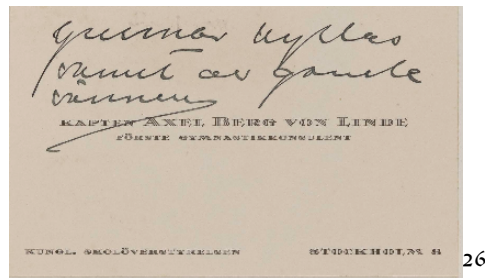 Gunnar hyllas
varmt av gamle
vännen
KAPTEN AXEL BERG VON LINDE
FÖRSTE GYMNASTIKKONSULENT
KUNGL. SKOLÖVERSTYRELSEN STOCKHOLM 8
26